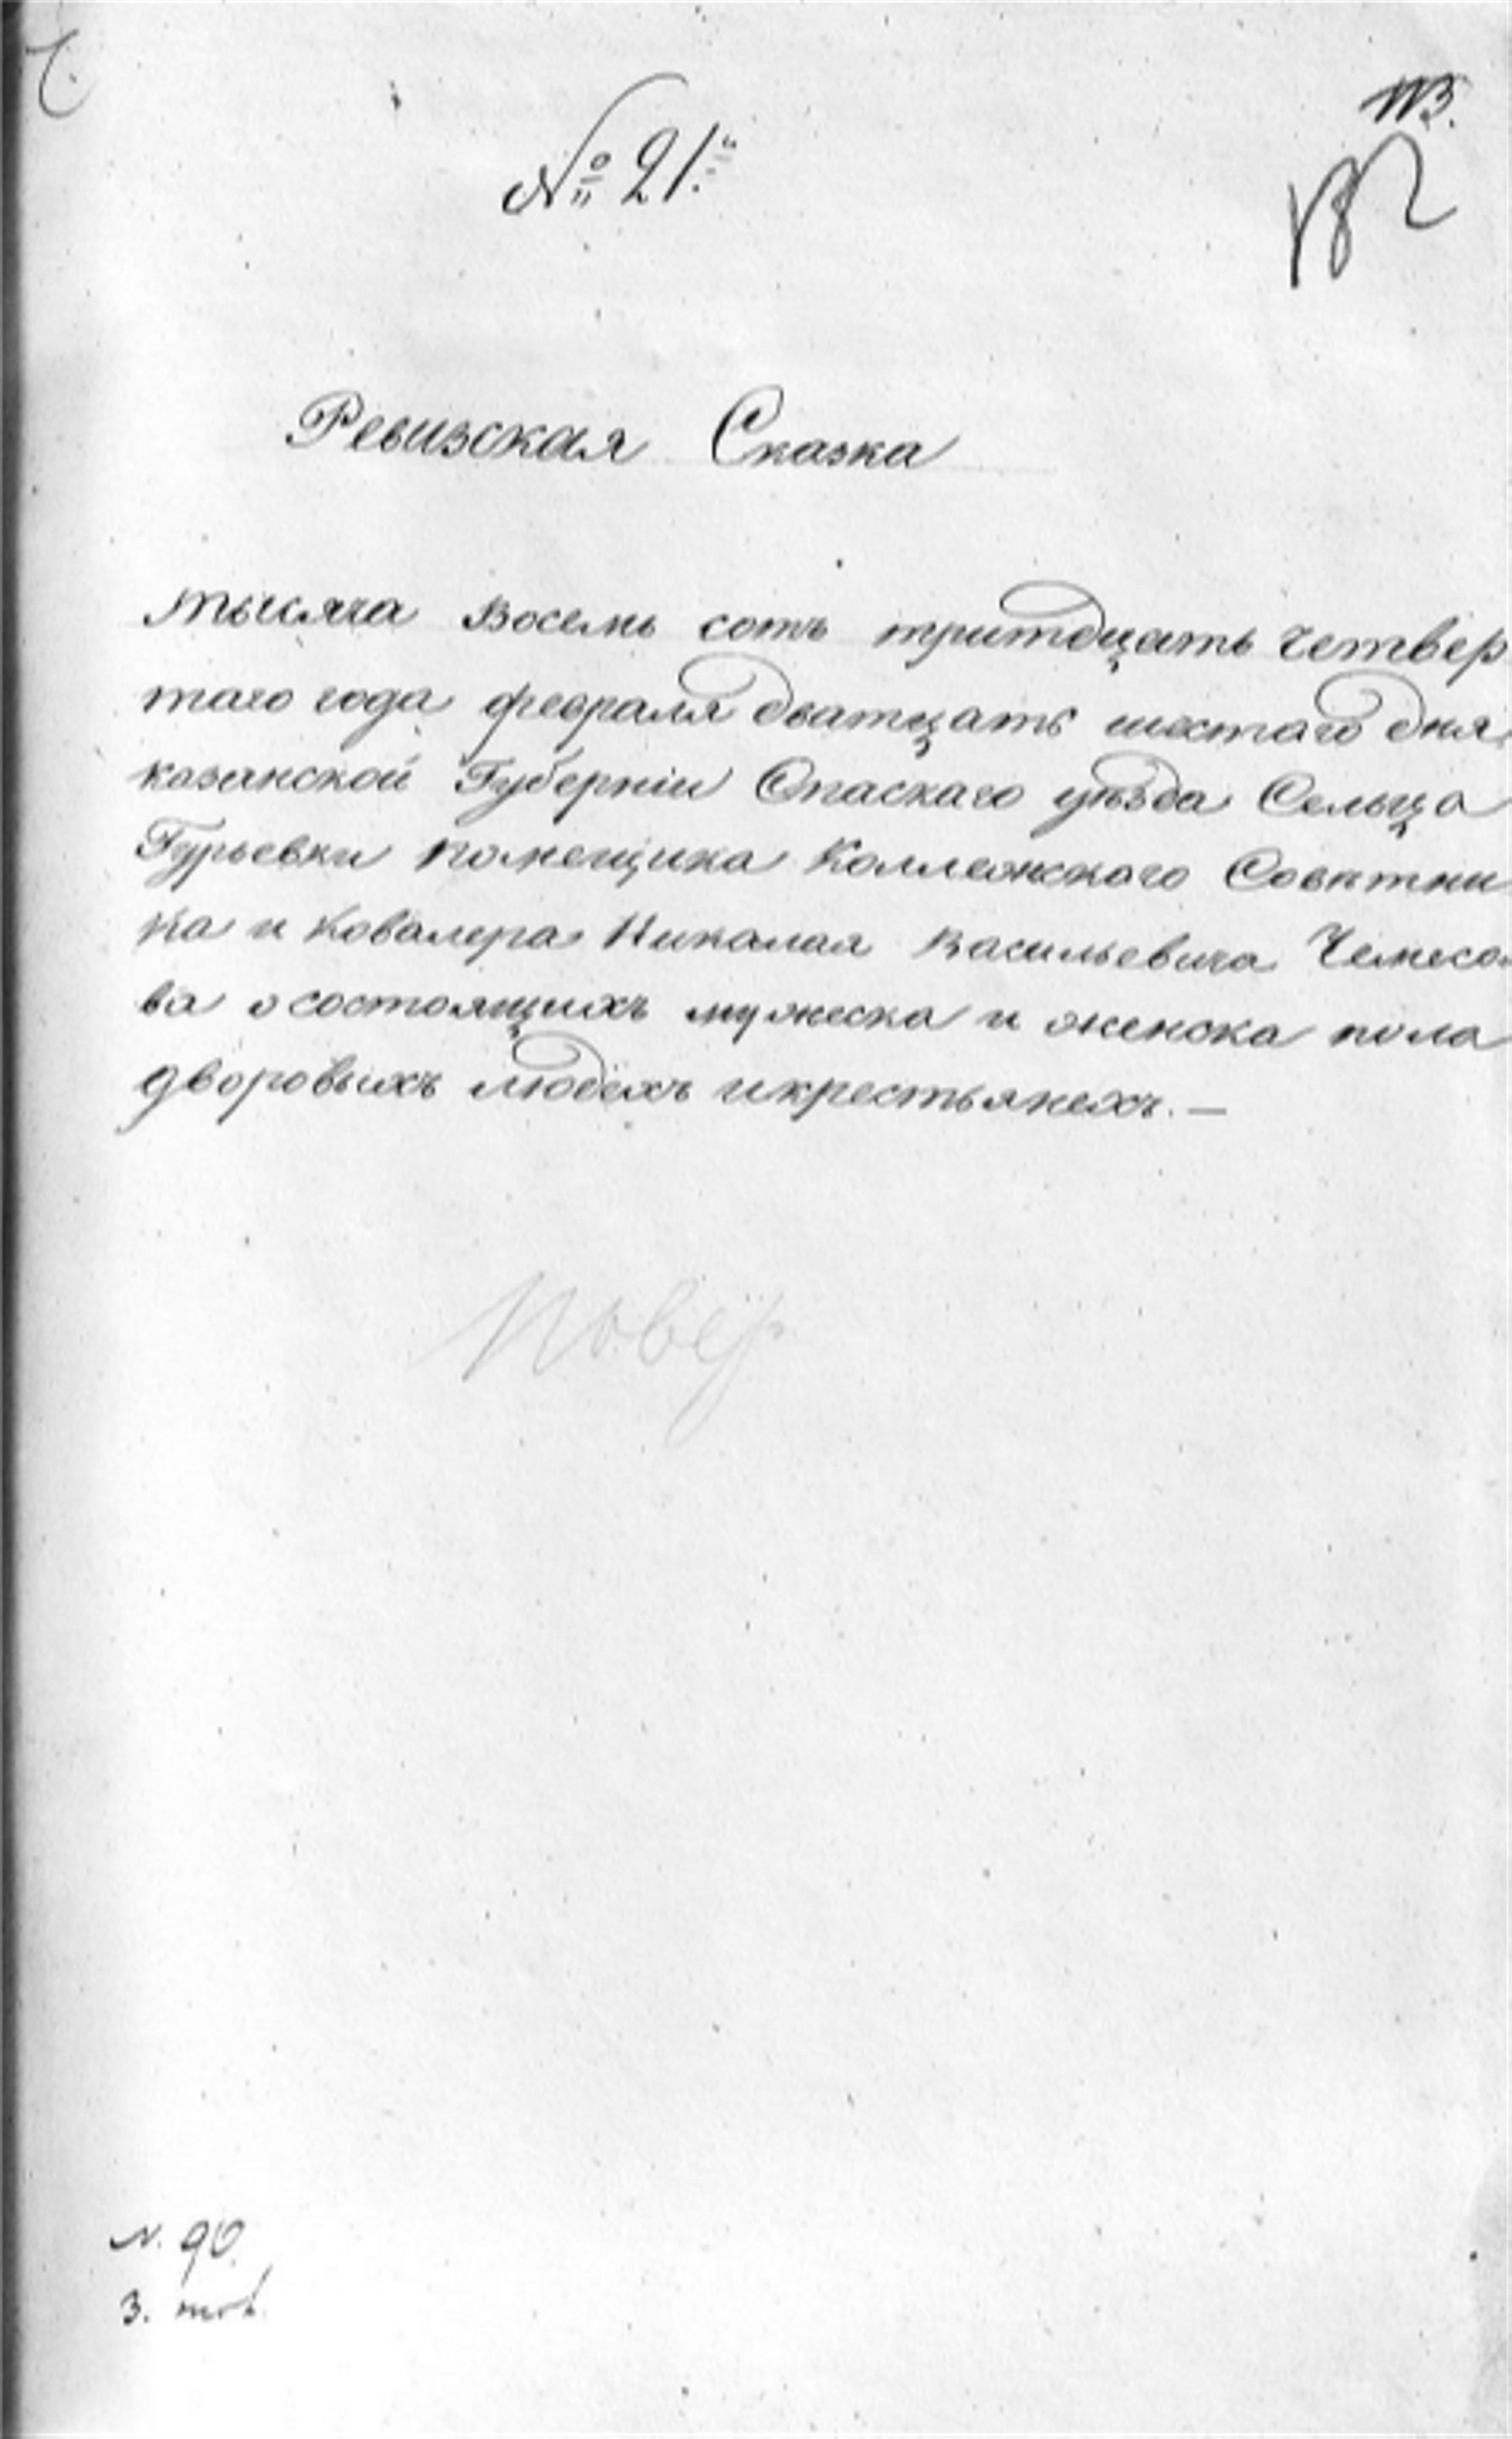 № 21.
Ревизская Сказка
тысяча Восемь сотъ тритдцать четвер
таго года февраля дватцать шестаго дня
казанской Губерніи Спаскаго уѣзда Сельца
Гурьевки помещика Коллежскаго Совѣтни
ка и Ковалера Николая Васильевича Чемесо
ва о состоящихъ мужеска и женска пола
дворовыхъ людехъ икрестьянехъ. —
Повер
N. 90.